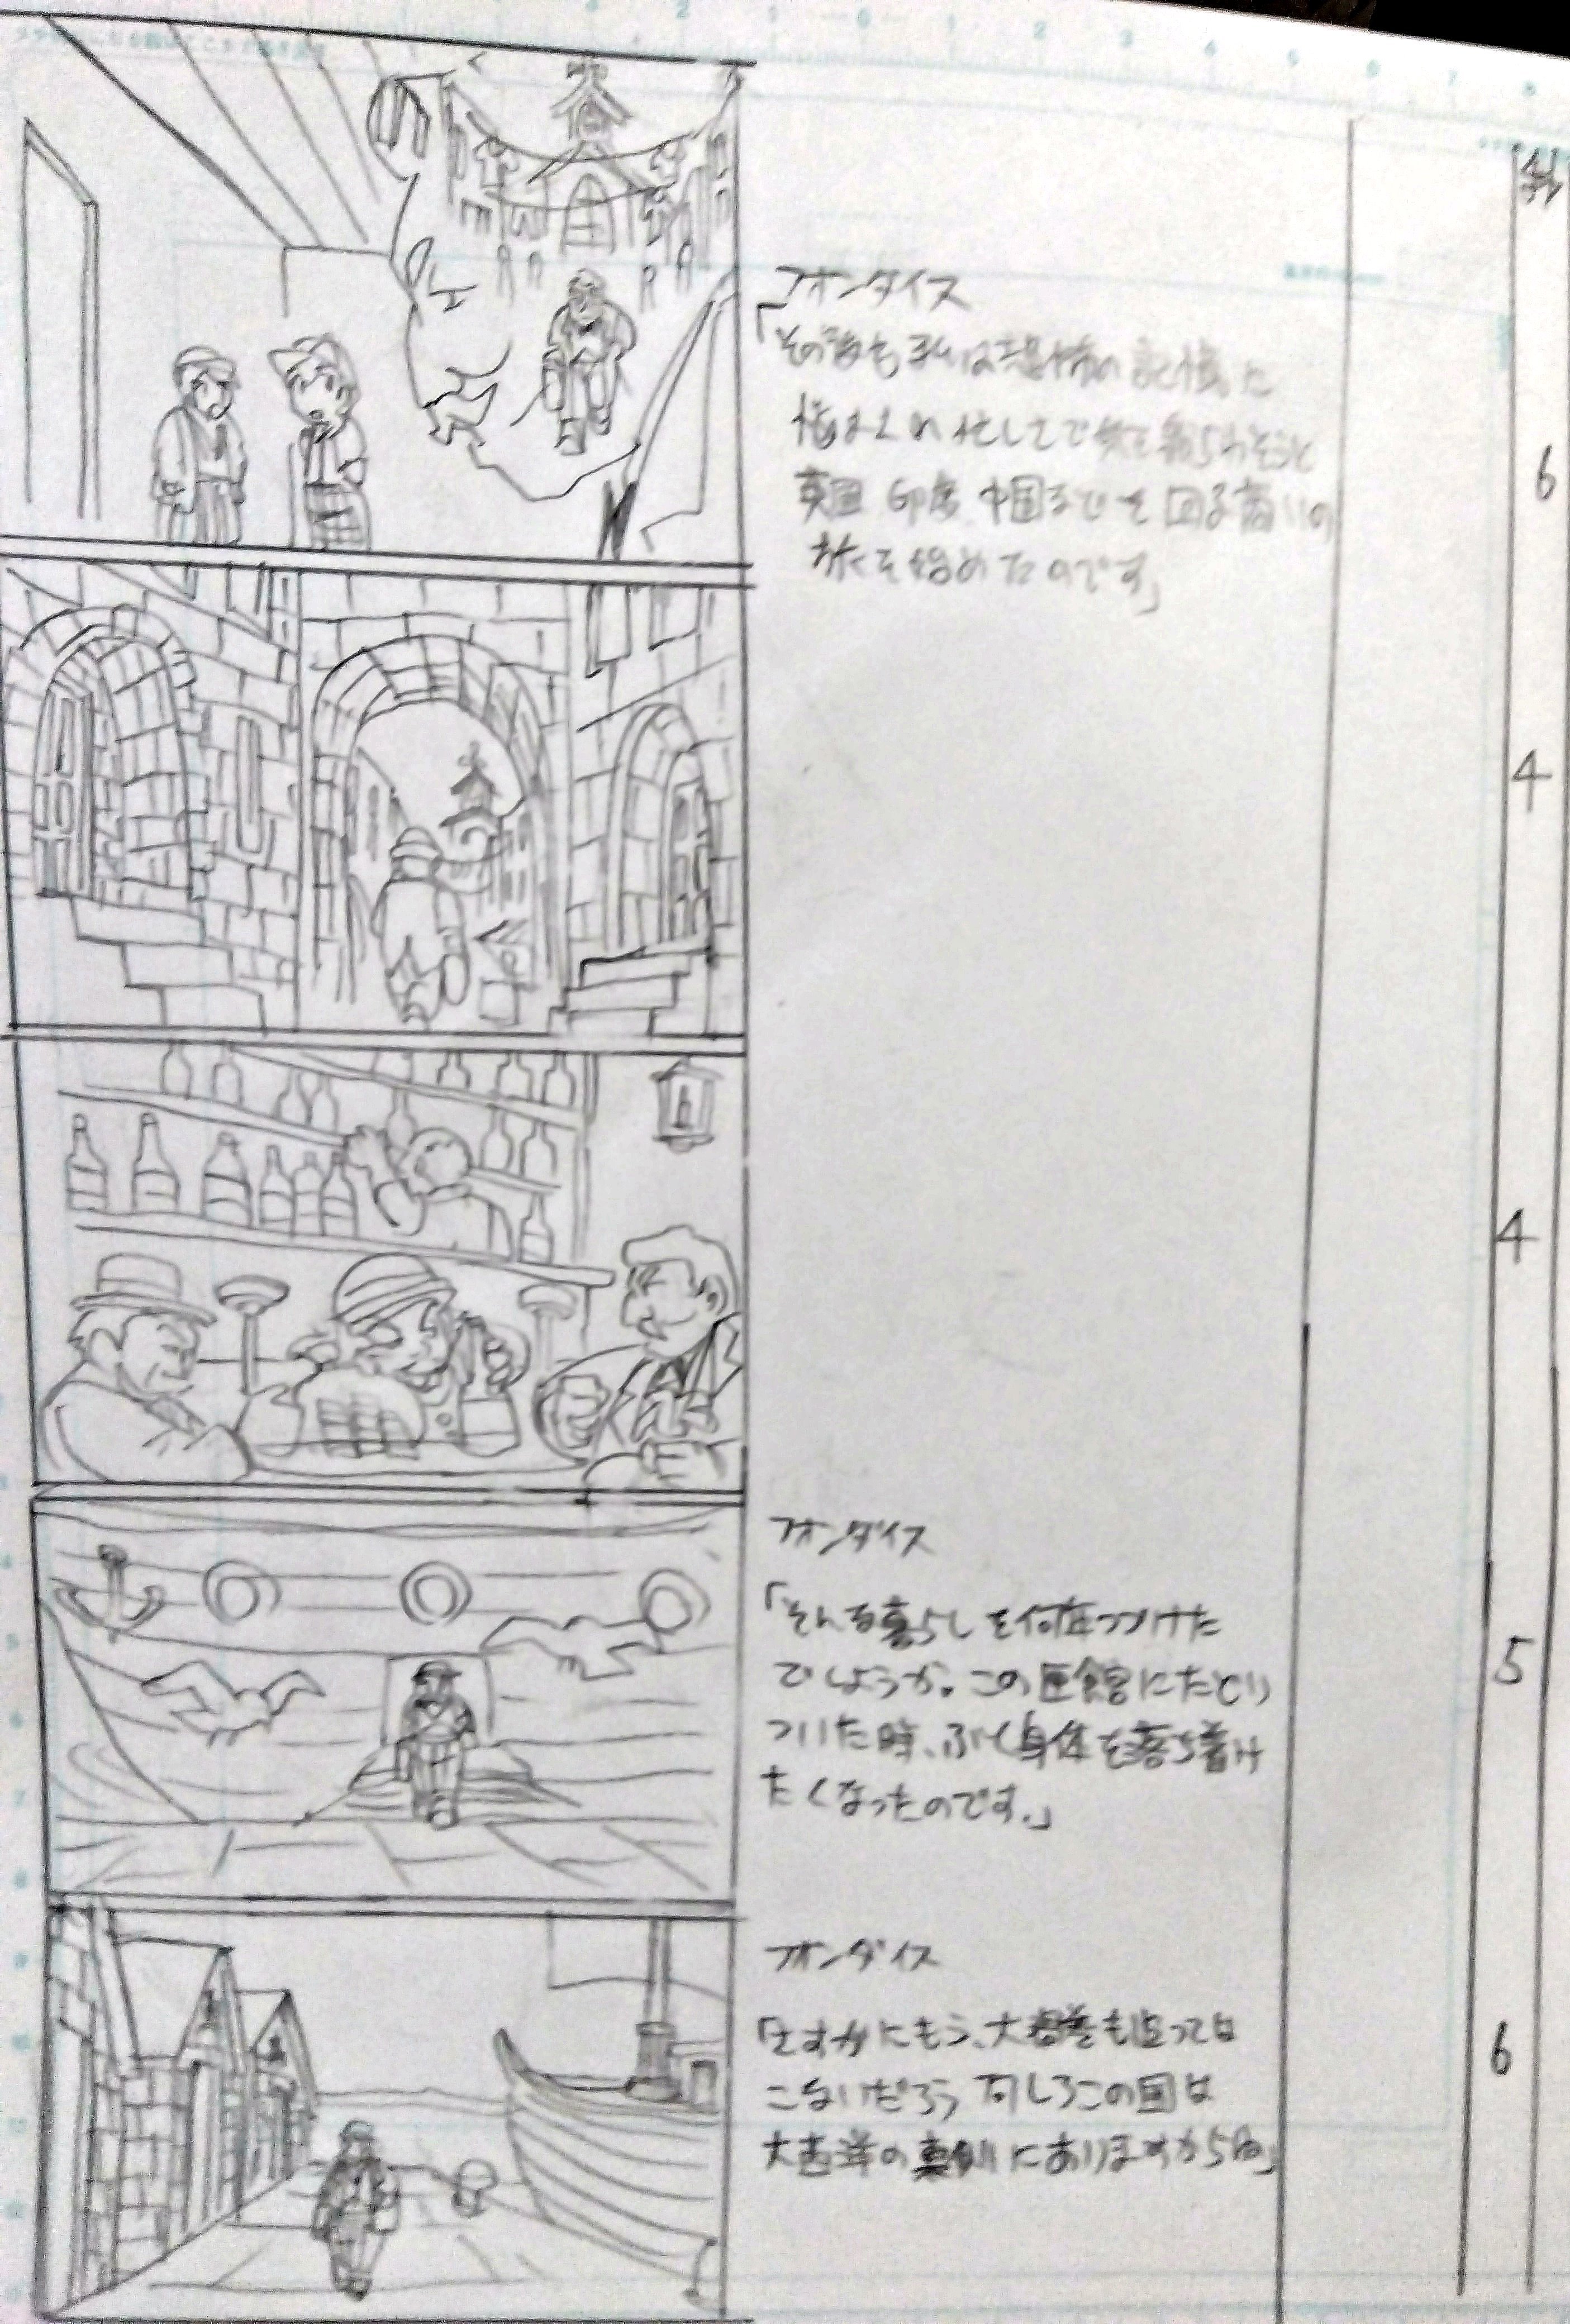 秒
フォンダイス
「その後も私は恐怖の記憶に
悩まされ 忙しさで気を紛らわそうと
英国 印度 中国までを回る商いの
旅を始めたのです」
6
4
4
フォンダイス
「そんな暮らしを何年つづけた
でしょうか。この
ついた時、ふと身体を落ち着け
たくなったのです。」
5
フォンダイス
「さすがにもう、も追っては
こないだろう 何しろこの国は
大西洋の真側にありますからね」
6